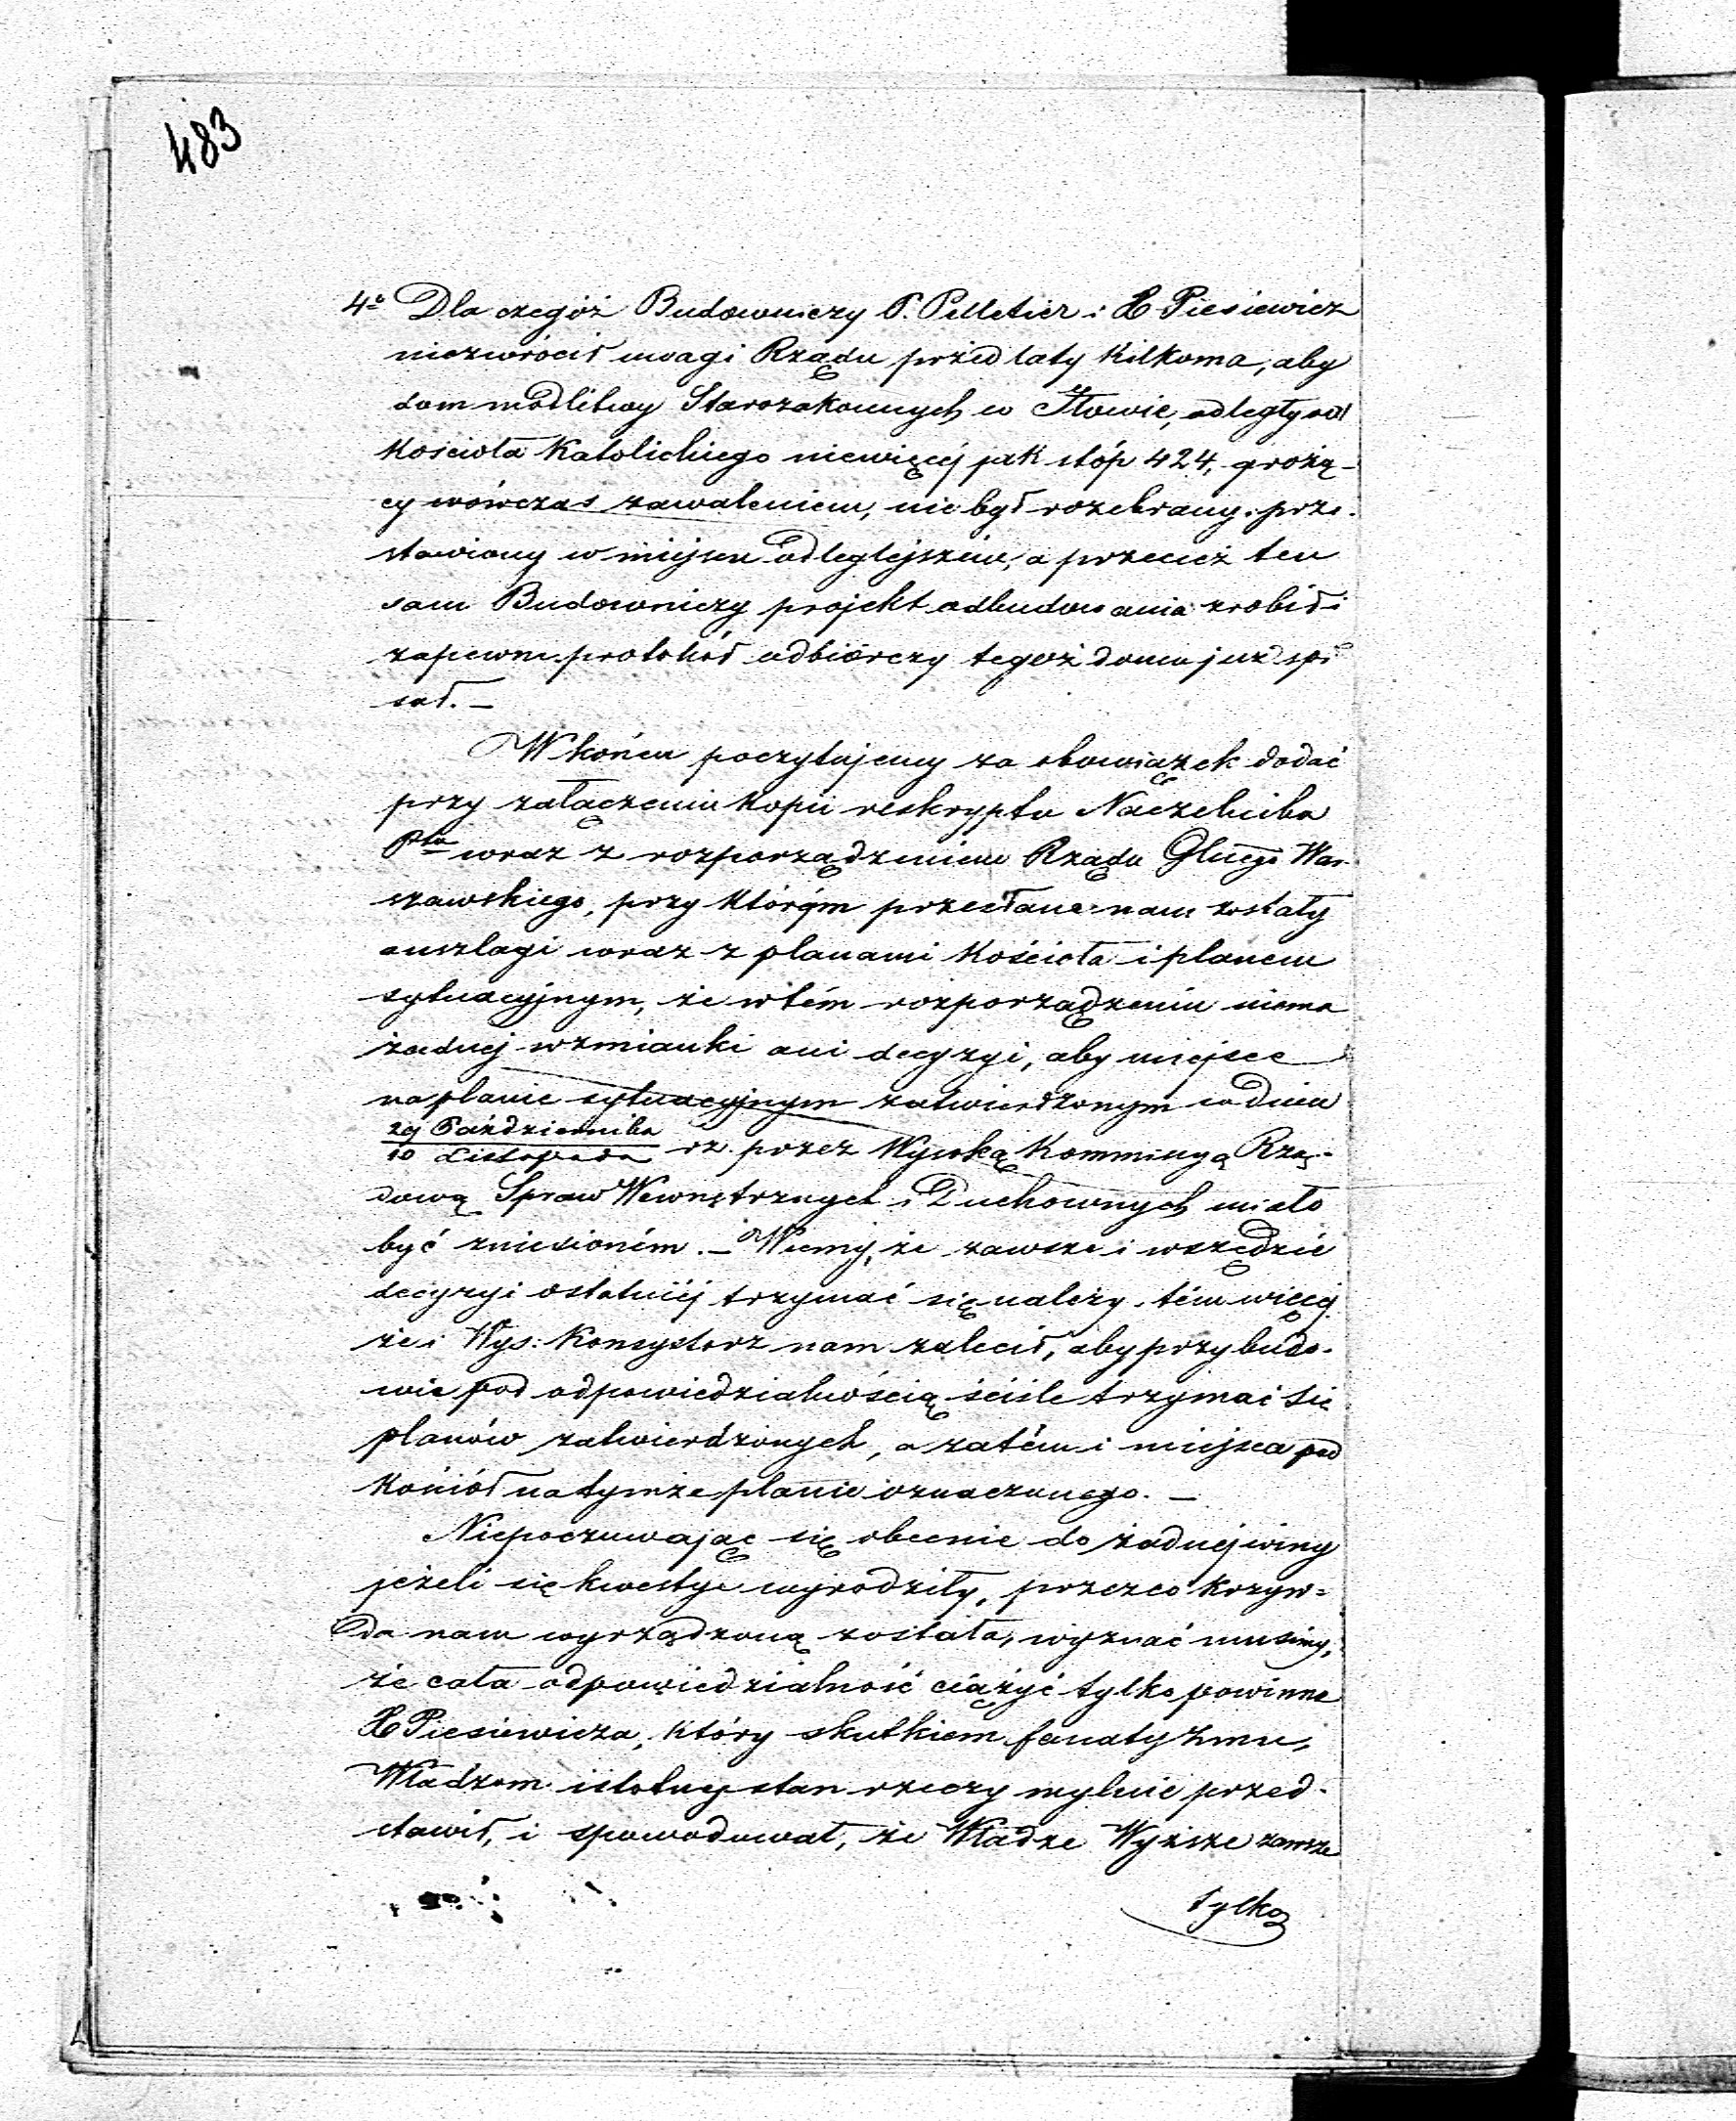 483
4º Dla czegóż Budowniczy P. Pelletier i X Piesiewicz
niezwrócił uwagi Rządu przed laty kilkoma, aby
dom modlitwy Starozakonnych w Iłowie, odległy od
Kościoła Katolickiego niewięcéj jak stóp 424, grożą-
cy wówczas zawaleniem, nie był rozebrany i prze-
stawiony w miejscu odleglejszém, a przecież ten
sam Budowniczy projekt odbudowania zrobił i
zapewne protokół odbiorczy tegoż domu już spi
sał. —
W końcu poczytujemy za obowiązek dodać
przy załączeniu Kopii reskryptu Naczelnika
Ptu wraz z rozporządzeniem Rządu Glnego War-
szawskiego, przy którym przesłane nam zostały
anszlagi wraz z planami Kościoła i planem
sytuacyjnym, że w tém rozporządzeniu niema
żadnej wzmianki ani decyzyi, aby miejsce
na planie sytuacyjnym zatwierdzonym w dniu
29 Października
10 Listopada rz. przez Wysoką Kommissyą Rzą-
dową Spraw Wewnętrznych i Duchownych miało
być zniesioném. — Wiemy, że zawsze i wszędzie
decyzyi ostatniéj trzymać się należy, tém więcéj
że i Wys: Konsystorz nam zalecił, aby przy budo-
wie pod odpowiedzialnością ściśle trzymać się
planów zatwierdzonych, a zatém i miejsca pod
Kościół na tymże planie oznaczonego. —
Niepoczuwając się obecnie do żadnéj winy
jeżeli się kwestye wyrodziły, przez co krzyw=
da nam wyrządzoną została, wyznać musimy,
że cała odpowiedzialność ciążyć tylko powinna
X Piesiewicza, który skutkiem fanatyzmu,
Władzom istotny stan rzeczy mylnie przed-
stawił, i spowodował, że Władze Wyższe zawsze
tylko